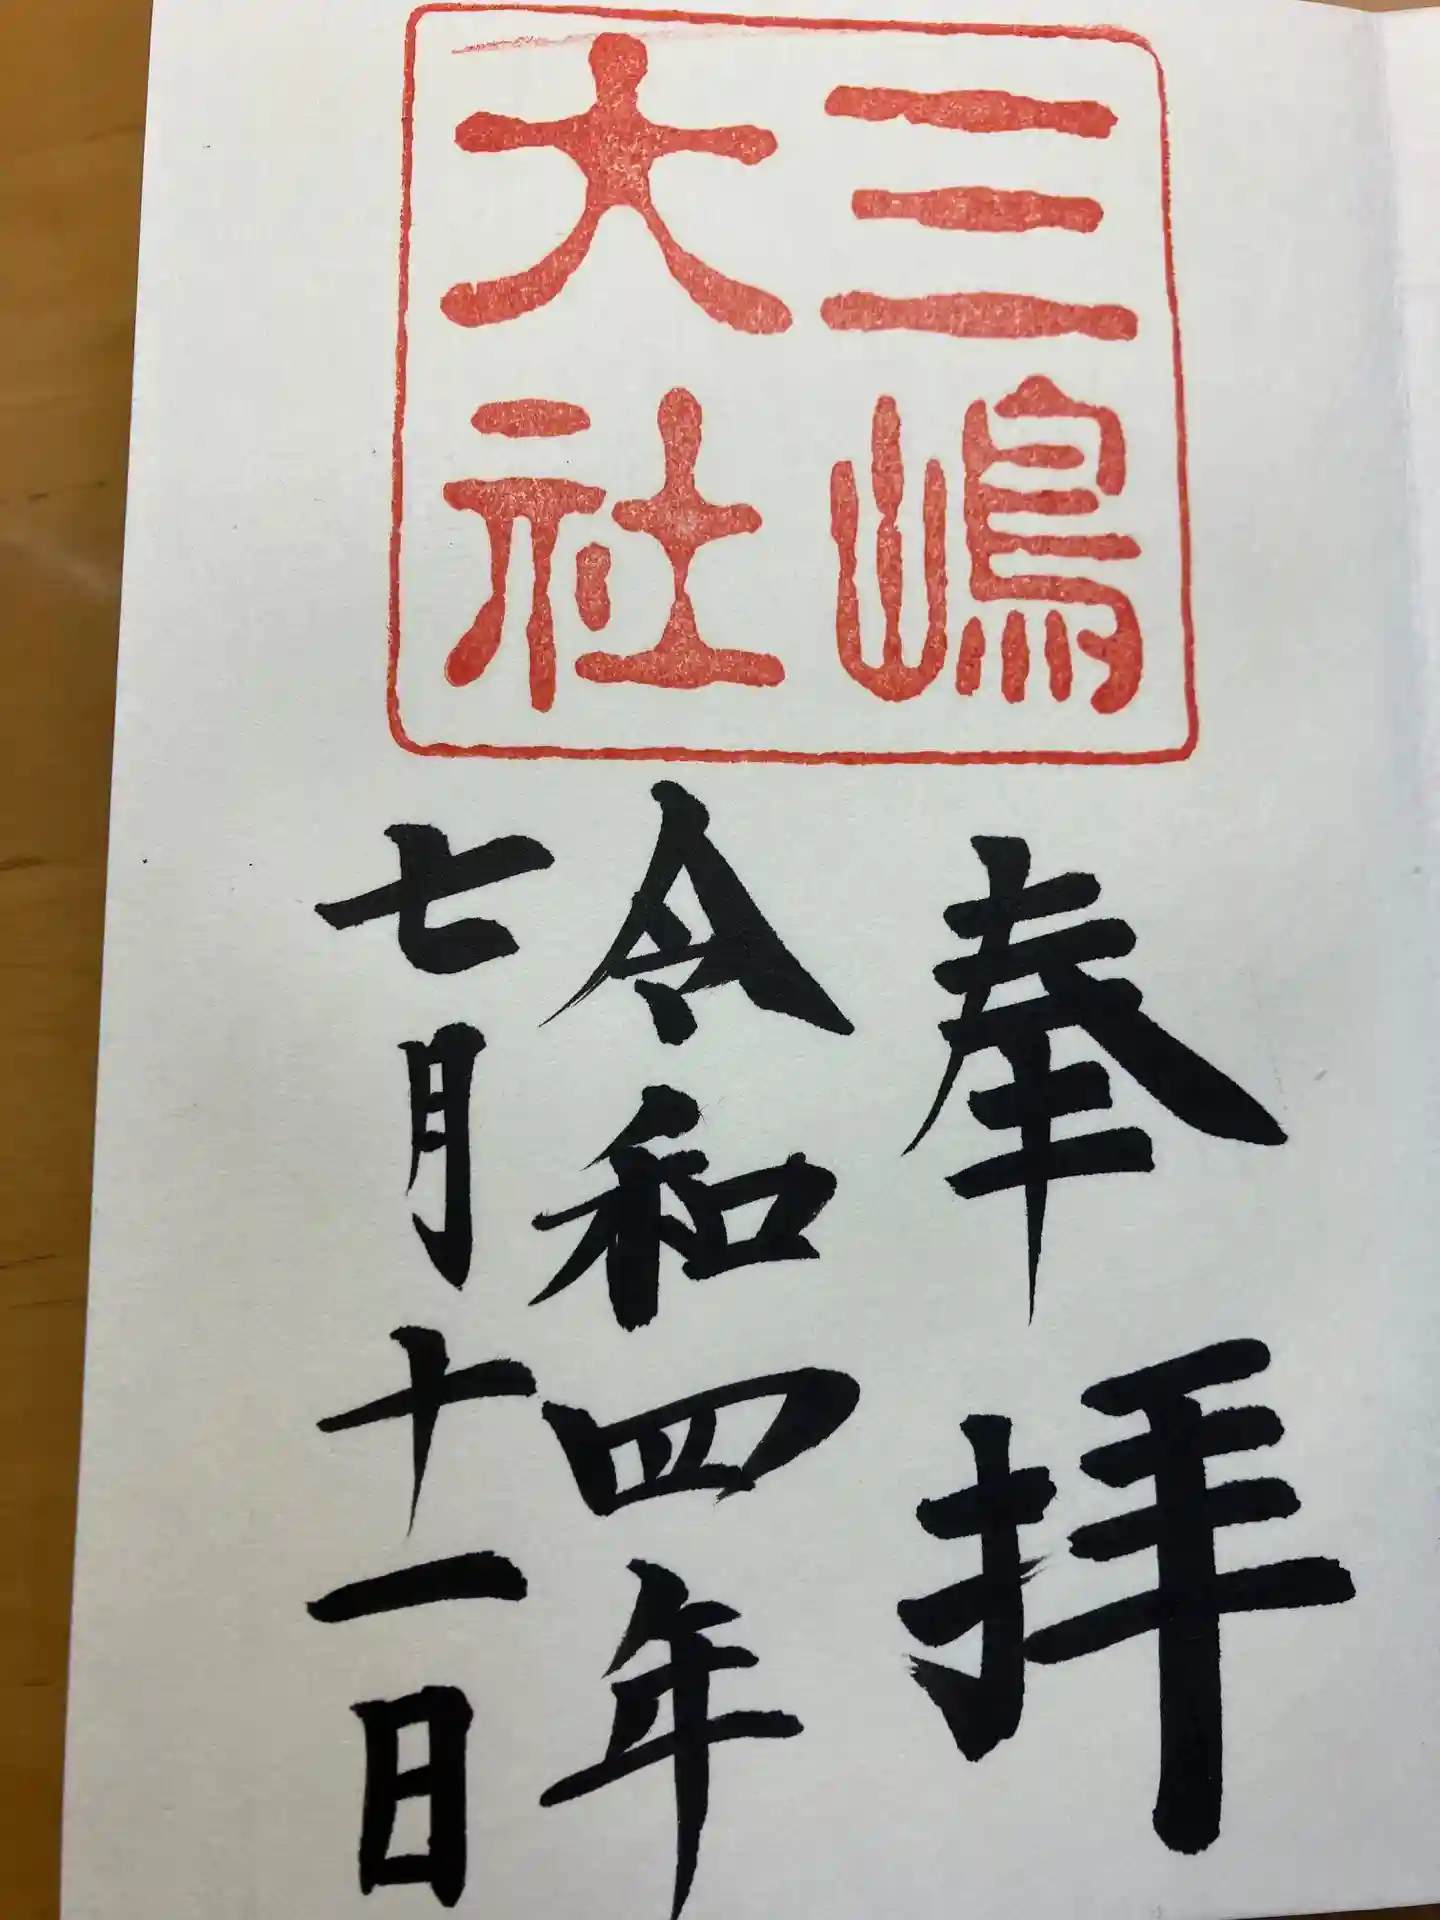 三嶋
大社
奉拝
令和四年
七月十一日